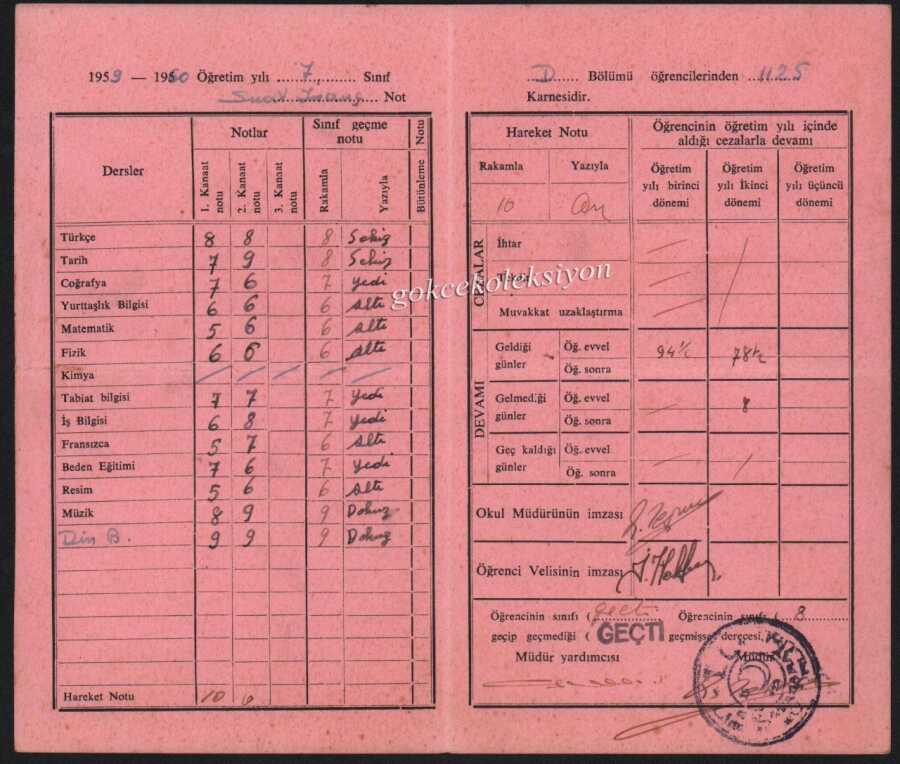 1959 — 1960 Öğretim yılı 7 Sınıf
Suat Not
Dersler Notlar Sınıf geçme notu Bütünleme Notu
1. Kanaat notu 2. Kanaat notu 3. Kanaat notu Rakamla Yazıyla
Türkçe 8 8 8 Sekiz
Tarih 7 9 8 Sekiz
Coğrafya 7 6 7 yedi
Yurttaşlık Bilgisi 6 6 6 altı
Matematik 5 6 6 altı
Fizik 6 6 6 altı
Kimya
Tabiat bilgisi 7 7 7 yedi
İş Bilgisi 6 8 7 yedi
Fransızca 5 7 6 altı
Beden Eğitimi 7 6 7 yedi
Resim 5 6 6 altı
Müzik 8 9 9 Dokuz
Din B. 9 9 9 Dokuz
Hareket Notu 10
D Bölümü öğrencilerinden 1125
Karnesidir.
Hareket Notu Öğrencinin öğretim yılı içinde aldığı cezalarla devamı
Rakamla Yazıyla Öğretim yılı birinci dönemi Öğretim yılı İkinci dönemi Öğretim yılı üçüncü dönemi
10 On
CEZALAR
İhtar
Muvakkat uzaklaştırma
gokcekoleksiyon
DEVAMI
Geldiği günler Öğ. evvel 94½ 78½
Öğ. sonra
Gelmediği günler Öğ. evvel — 8
Öğ. sonra
Geç kaldığı günler Öğ. evvel
Öğ. sonra
Okul Müdürünün imzası
Öğrenci Velisinin imzası
Öğrencinin sınıfı (geçti Öğrencinin sınıfı ( 8
geçip geçmediği ( GEÇTİ geçmişse derecesi,
Müdür yardımcısı Müdür